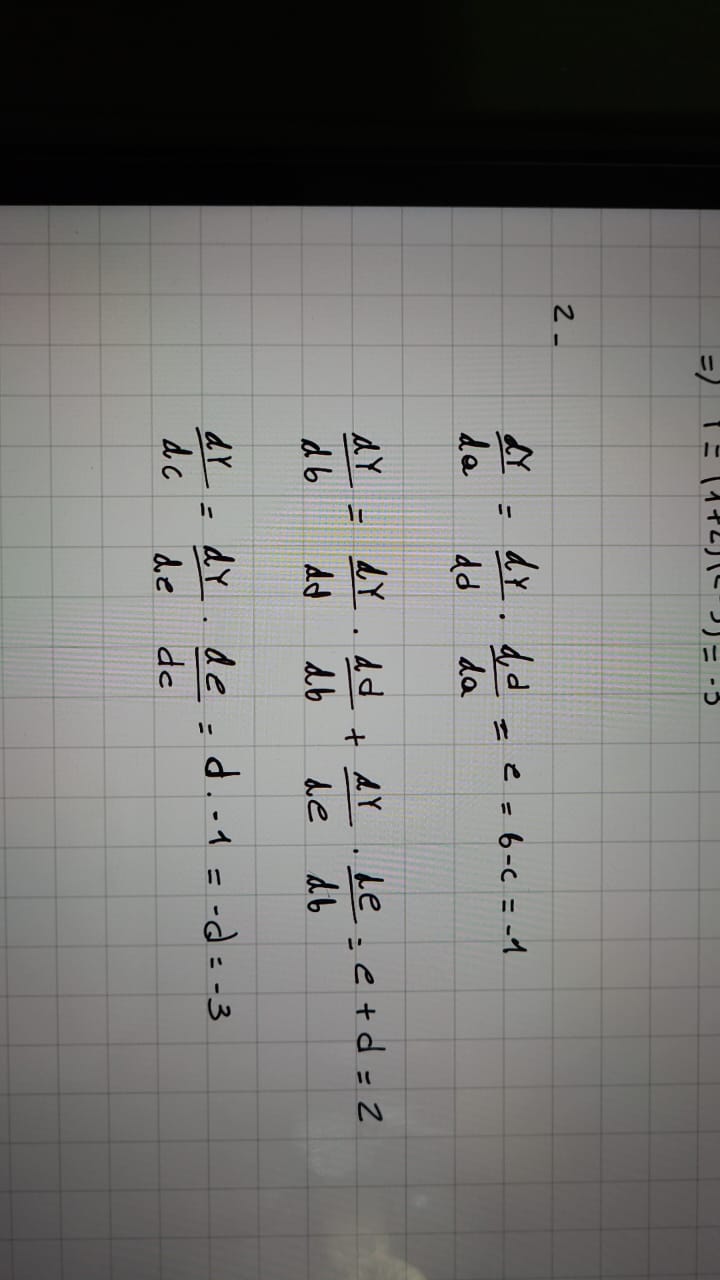 =) Y = (1+2)(2-3) = -3
2-
dY/da = dY/dd · dd/da = e = b-c = -1
dY/db = dY/dd · dd/db + dY/de · de/db = e + d = 2
dY/dc = dY/de · de/dc = d. -1 = -d = -3